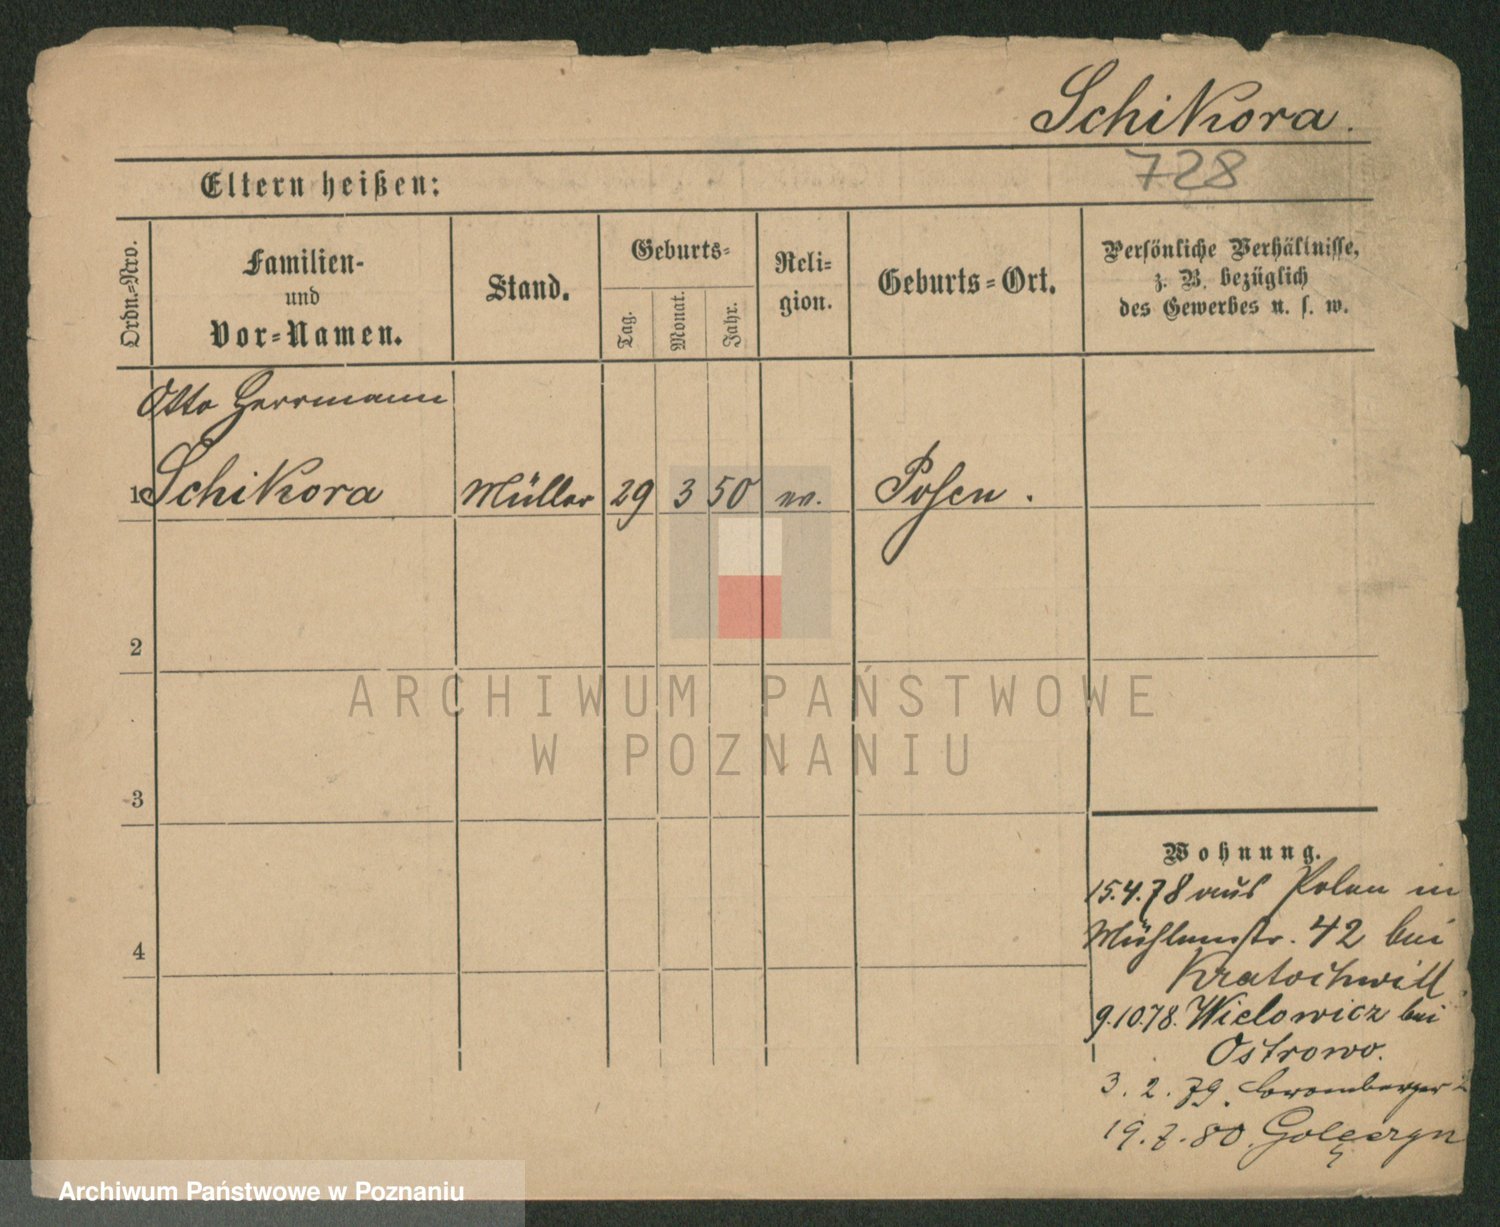 Schikora.
728
Eltern heißen:
Ordn.-Nro.
Familien-
und
Vor-Namen.
Stand.
Geburts-
Tag.
Monat.
Jahr.
Reli-
gion.
Geburts-Ort.
Persönliche Verhältnisse,
z. B. bezüglich
des Gewerbes u. s. w.
Otto Herrmann
1 Schikora Müller 29 3 50 Posen.
2
ARCHIWUM PAŃSTWOWE
W POZNANIU
3
4
Wohnung.
15.4.78 aus Polen in
Mühlenstr. 42 bei
Kratochwill
9.10.78. Wielowicz bei
Ostrowo.
3.2.79. Bromberger
19.7.80. Golęczyn
Archiwum Państwowe w Poznaniu